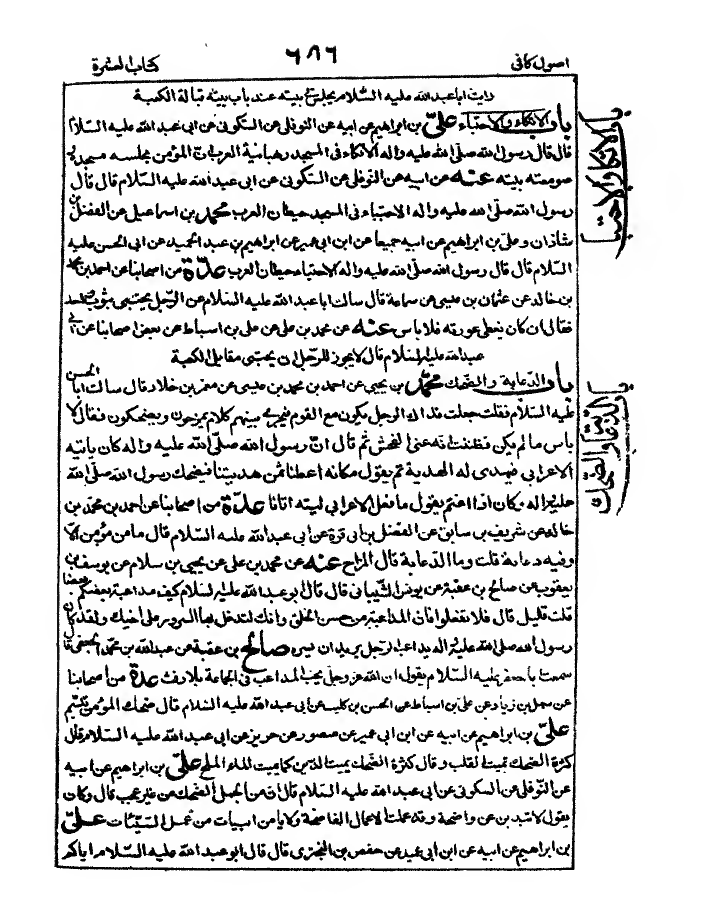 اصول کافی
۶۸۶
کتاب العشرة
رایت اباعبدالله علیه السّلام یجلس فی بیته عند باب بیته قبالة الکعبة
باب الاتکاء والاحتباء علیّ بن ابراهیم عن ابیه عن النوفلی عن السکونی عن ابی عبد الله علیه السّلام
قال قال رسول الله صلّی الله علیه واله الاتکاء فی المسجد رهبانیة العرب ان المؤمن مجلسه مسجده و
صومعته بیته عنه عن ابیه عن النوفلی عن السکونی عن ابی عبدالله علیه السّلام قال قال
رسول الله صلّی الله علیه واله الاحتباء فی المسجد حیطان العرب محمد بن اسماعیل عن الفضل بن
شاذان وعلی بن ابراهیم عن ابیه جمیعا عن ابن ابی عمیر عن ابراهیم بن عبد الحمید عن ابی الحسن علیه
السّلام قال قال رسول الله صلّی الله علیه واله الاحتباء حیطان العرب عدّة من اصحابنا عن احمد بن محمد
بن خالد عن عثمان بن عیسی عن سماعة قال سالت اباعبدالله علیه السّلام عن الرّجل یحتبی بثوب واحد
فقال ان کان یغطی عورته فلا باس عنه عن محمد بن علی عن علی بن اسباط عن بعض اصحابنا عن ابی
عبدالله علیه السّلام قال لایجوز للرّجل ان یحتبی مقابل الکعبة
باب الدّعابة والضّحک محمّد بن یحیی عن احمد بن محمد بن عیسی عن معمر بن خلاد قال سالت ابا الحسن
علیه السّلام فقلت جعلت فداک الرجل یکون مع القوم فیجری بینهم کلام یمزحون ویضحکون فقال لا
باس ما لم یکن فظننت انه عنی الفحش ثم قال انّ رسول الله صلّی الله علیه واله کان یاتیه
الاعرابی فیهدی له الهدیة ثم یقول مکانه اعطنا ثمن هدیتنا فیضحک رسول الله صلّی الله
علیه واله وکان اذا اغتم یقول ما فعل الاعرابی لیته اتانا عدّة من اصحابنا عن احمد بن محمد بن
خالد عن شریف بن سابق عن الفضل بن ابی قرة عن ابی عبدالله علیه السّلام قال ما من مؤمن الا
وفیه دعابة قلت وما الدّعابة قال المزاح عنه عن محمد بن علی عن یحیی بن سلام عن یوسف بن
یعقوب عن صالح بن عقبة عن یونس الشیبانی قال قال ابوعبدالله علیه السّلام کیف مداعبة بعضکم بعضا
قلت قلیل قال فلا تفعلوا فان المداعبة من حسن الخلق وانک لتدخل بها السرور علی اخیک ولقد کان
رسول الله صلی الله علیه واله یداعب الرّجل یرید ان یسره صالح بن عقبة عن عبدالله بن محمّد الجعفی قال
سمعت اباجعفر علیه السّلام یقول ان الله عز وجل یحب المداعب فی الجماعة بلا رفث عدة من اصحابنا
عن سهل بن زیاد عن علی بن اسباط عن الحسن بن کلیب عن ابی عبد الله علیه السّلام قال ضحک المؤمن تبسّم
علیّ بن ابراهیم عن ابیه عن ابن ابی عمیر عن منصور عن حریز عن ابی عبدالله علیه السّلام قال
کثرة الضحک تمیت القلب وقال کثرة الضّحک یمیث الدّین کما یمیث الماء الملح علیّ بن ابراهیم عن ابیه
عن النّوفلی عن السکونی عن ابی عبد الله علیه السّلام قال ان من الجهل الضحک من غیر عجب قال وکان
یقول لا تبدین عن واضحة وقد عملت الاعمال الفاضحة ولا یامن البیات من عمل السّیّئات علیّ
بن ابراهیم عن ابیه عن ابن ابی عمیر عن حفص بن البختری قال قال ابوعبدالله علیه السّلام ایاکم
باب الاتکاء والاحتباء
باب الدّعابة والضّحک